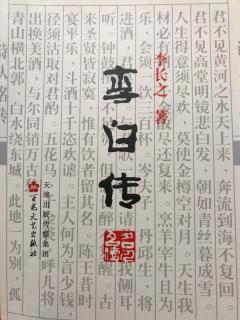 李长之 著
李白传
君不见黄河之水天上来 奔流到海不复回。
君不见高堂明镜悲白发 朝如青丝暮成雪。
人生得意须尽欢，莫使金樽空对月。天生我
材必有 尽还复来。烹羊宰牛且为
乐，会须 饮三百杯。岑夫子，丹丘生，将
进酒， 侧耳
听。钟鼓 醒。古
来圣贤皆寂寞，惟有饮者留其名。陈王昔时
宴平乐，斗酒十千恣欢谑。主人何为言少钱
径须沽取对君酌。五花马 呼儿将
出换美酒，与尔同销万
青山横北郭，白水绕东城。 地 为别，孤
天津出版传媒集团
百花文艺出版社